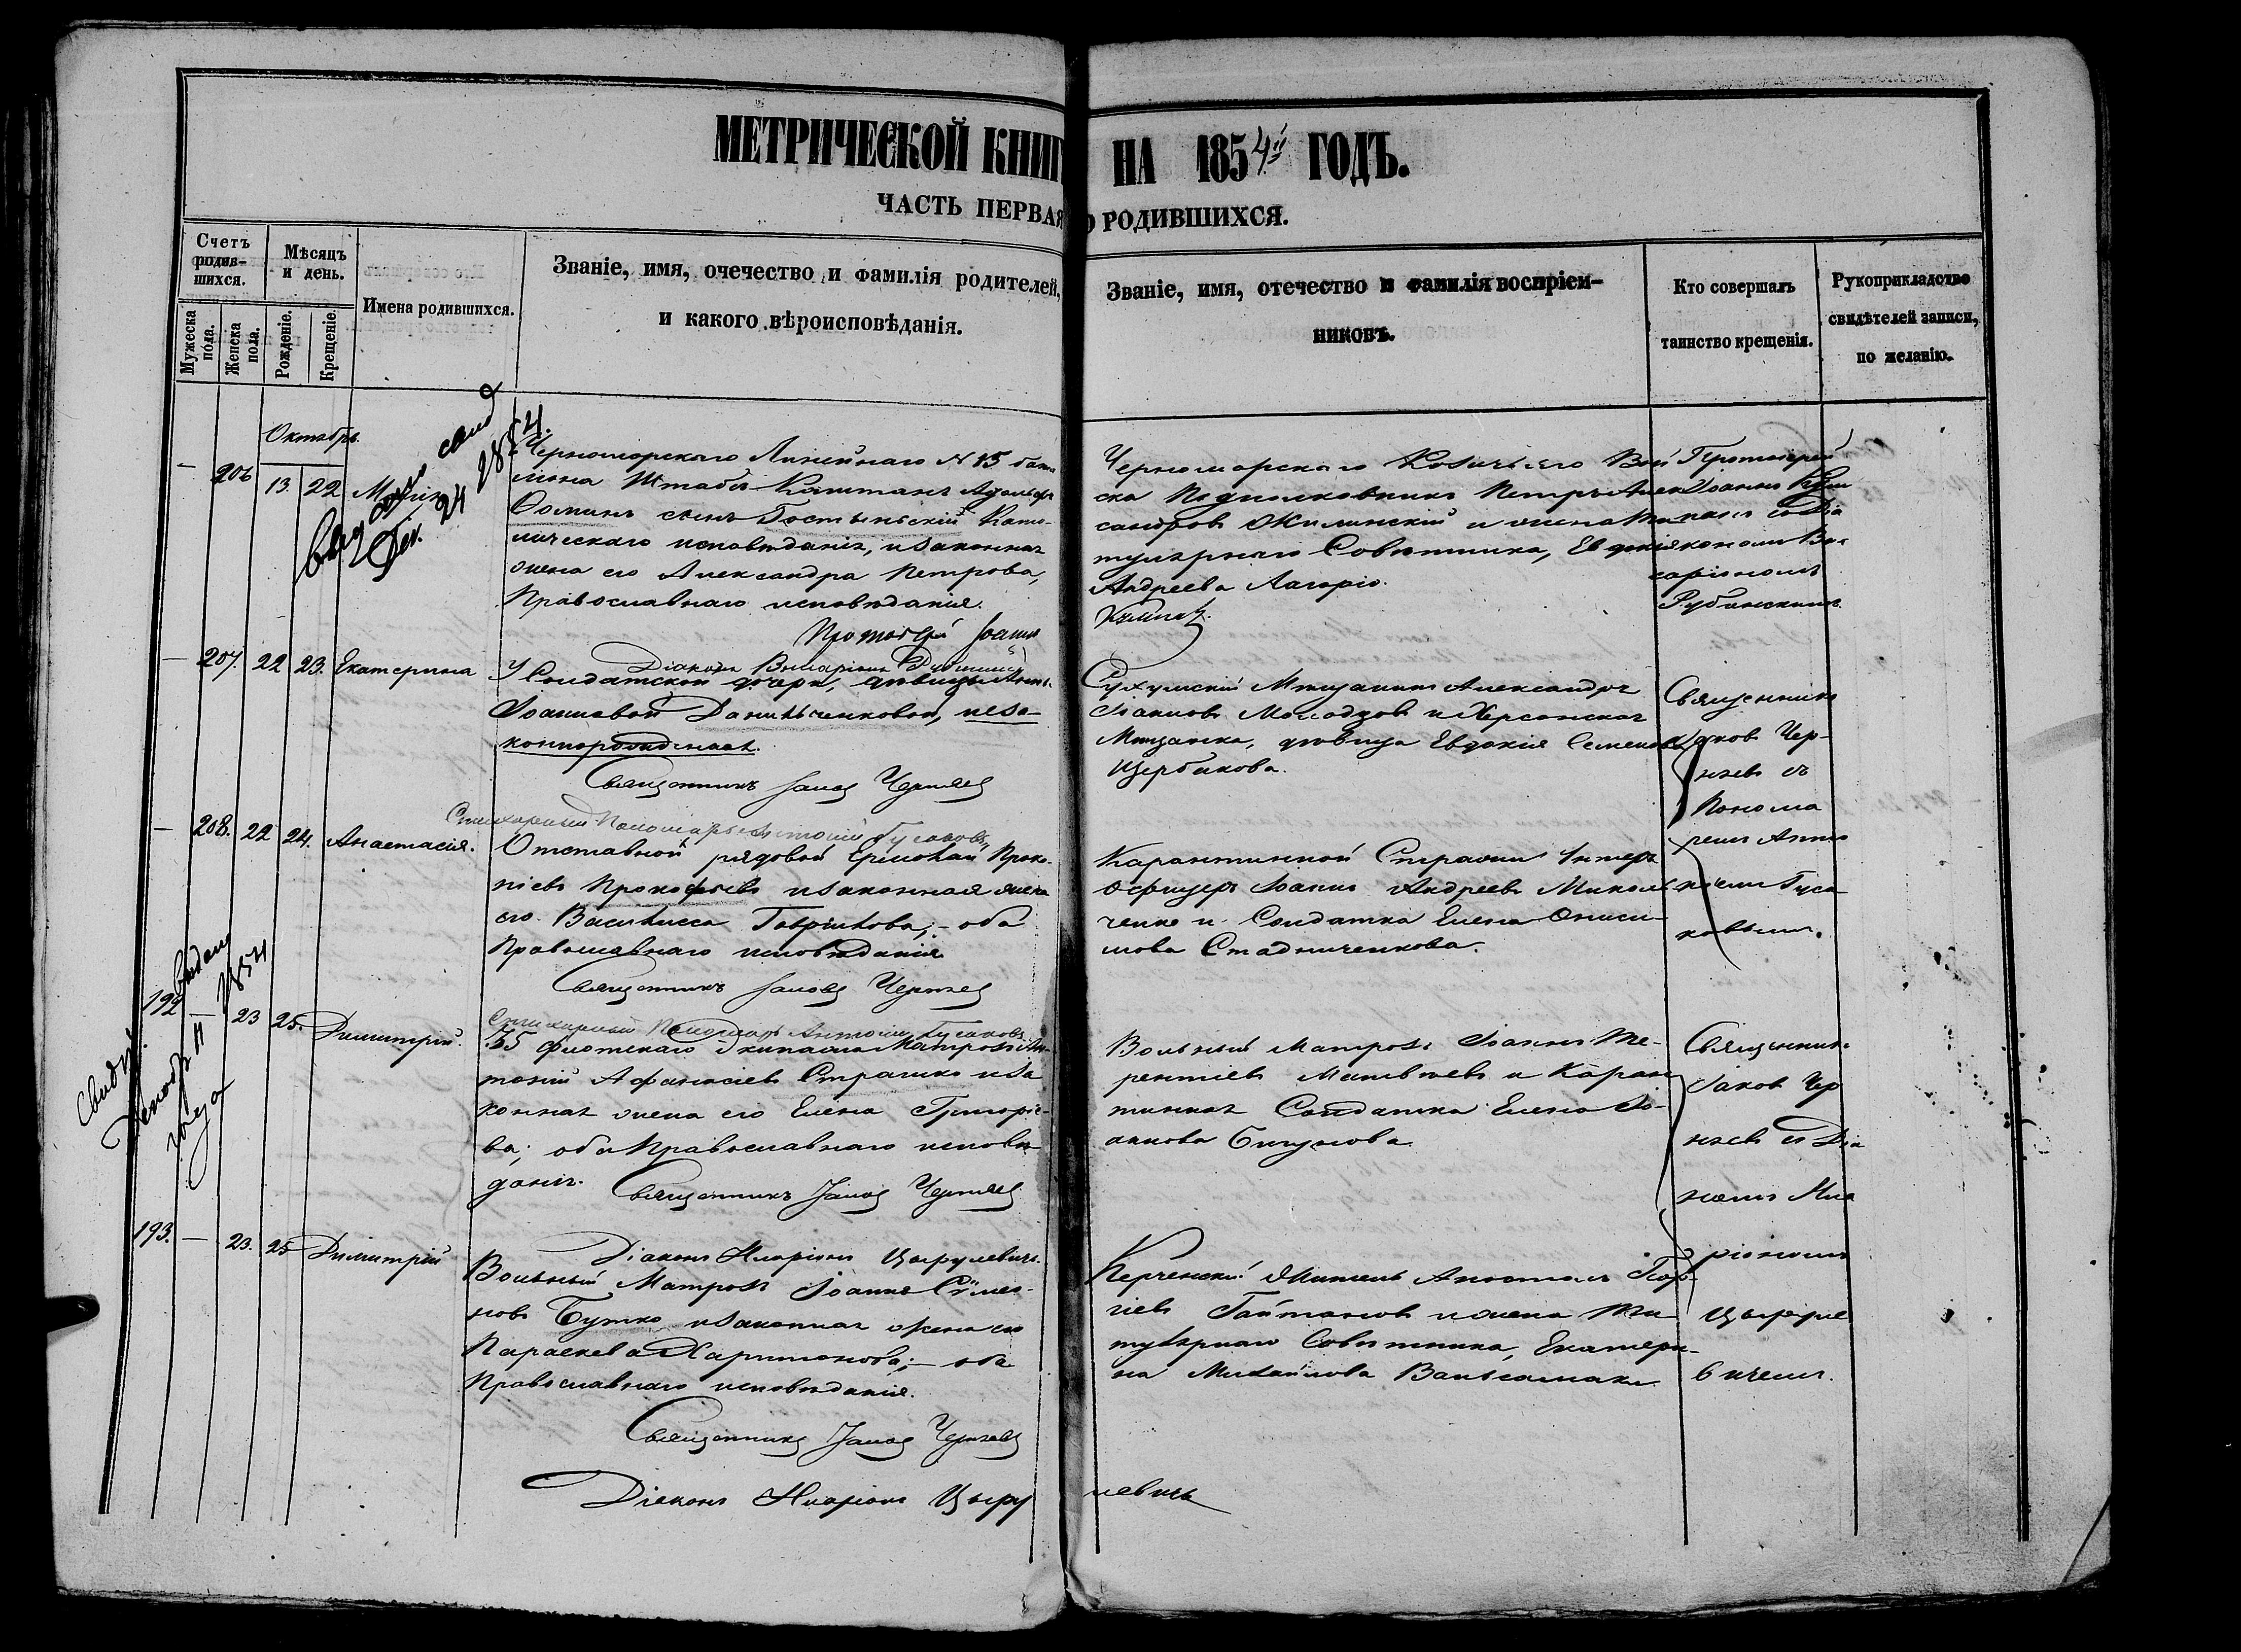 МЕТРИЧЕСКОЙ КНИГ НА 1854й ГОДЪ.
ЧАСТЬ ПЕРВАЯ О РОДИВШИХСЯ.
Счетъ родив-шихся.
Мужеска пола.
Женска пола.
Мѣсяцъ и день.
Рожденіе.
Крещеніе.
Имена родившихся.
Званіе, имя, очечество и фамилія родителей,
и какого вѣроисповѣданія.
Званіе, имя, отечество и фамилія воспріем-
никовъ.
Кто совершалъ
таинство крещенія.
Рукоприкладство
свидѣтелей записи,
по желанію.
Октябрь
— 206 13. 22
Дек. 24 1854.
Черноморскаго Линейнаго N 15 бата
ліона Штабсъ-Капитанъ Адольфъ
Фоминъ сынъ Гостынскій Като-
лическаго исповѣданія, и законная
жена его Александра Петрова,
Православнаго исповѣданія.
Протоіерей Іоаннъ
Черноморскаго Козачьего Вой
ска Подполковникъ Петръ Алек
сандровъ Жилинскій и жена Ти
тулярнаго Совѣтника, Евдокія
Андреева Лагоріо.
Протоіерей
Іоаннъ
Рубанскимъ
— 207. 22 23. Екатерина
У Солдатской дочери, дѣвицы
Іоанновой Данильченковой, неза-
коннорожденная.
Священникъ Іаковъ Черняев
Сухумскій Мѣщанинъ Александръ
Іоанновъ Молодцовъ и Херсонская
Мѣщанка, дѣвица Евдокія Семенова
Щербакова.
Священникъ
Іаковъ Чер-
няевъ съ
Понома
ремъ Анто
ніемъ Гуса
ковымъ.
— 208. 22 24. Анастасія.
Стихарный Пономарь Антоній Гусаковъ
Отставной рядовой Ермолай Проко-
піевъ Прокофьевъ и законная жена
его Василисса Гаврилова; - оба
Православнаго исповѣданія
Священникъ Іаковъ Черняев
Карантинной Стражи Унтеръ
Офицеръ Іоаннъ Андреевъ Миколь
ченко и Солдатка Елена Ониси-
мова Стадниченкова.
192 — 23 25. Димитрій.
Стихарный Пономарь Антоній Гусаковъ
35 Флотскаго Экипажа Матрозъ Ан-
тоній Афанасіевъ Страшко и за
конная жена его Елена Григоріе-
ва; оба Православнаго исповѣ
данія. Священникъ Іаковъ Черняев
Вольный Матрозъ Іоаннъ Те-
рентіевъ Матвѣевъ и Каран
тинная Солдатка Елена Іо-
аннова Бигунова.
Священникъ
Іаковъ Чер
няевъ съ Діа
кономъ Ила
ріономъ
Цыруле
вичемъ.
193. — 23. 25 Димитрій
Діаконъ Иларіонъ Цырулевичъ.
Вольный Матрозъ Іоаннъ Симео-
новъ Бутко и законная жена его
Параскева Харитонова; - оба
Православнаго исповѣданія.
Священникъ Іаковъ Черняев
Діаконъ Иларіонъ Цыру левичъ
Керченскій Житель Апостолъ Геор-
гіевъ Гайтановъ и жена Ти
тулярнаго Совѣтника, Екатери-
на Михайлова Вальсамаки.